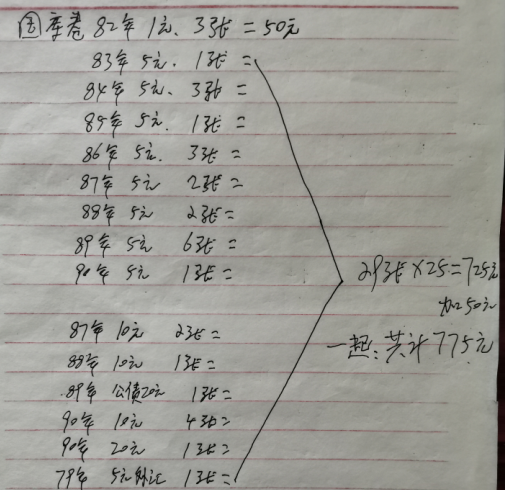 国库卷 82年 1元、3张 = 50元
83年 5元. 1张 =
84年 5元、3张 =
85年 5元. 1张 =
86年 5元. 3张 =
87年 5元 2张 =
88年 5元 2张 =
89年 5元 6张 =
90年 5元 1张 =
29张×25=725元
加50元
87年 10元 2张 =
一起:共计775元
88年 10元 1张 =
89年 公债20元 1张 =
90年 10元 4张 =
90年 20元 1张 =
79年 5元外汇 1张 =